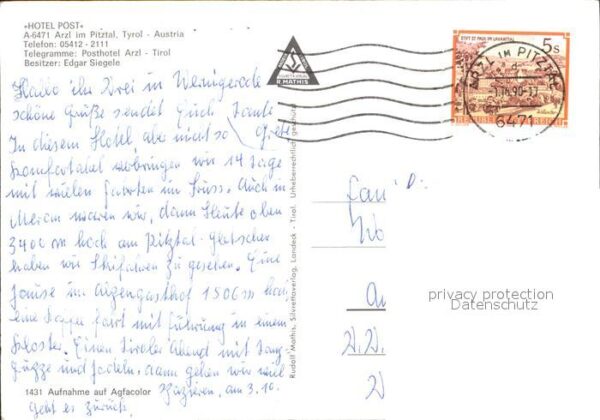 »HOTEL POST«
A-6471 Arzl im Pitztal, Tyrol - Austria
Telefon: 05412 - 2111
Telegramme: Posthotel Arzl - Tirol
Besitzer: Edgar Siegele
Hallo ihr Zwei in Wernigerode
schöne Grüße sendet Euch Tante
In diesem Hotel, aber nicht so Grete
komfortabel verbringen wir 14 Tage
mit vielen Fahrten im Auch in
Meran waren wir, dann Heute oben
3400 m hoch am Pitztal-Gletscher
haben wir Skifahren zu gesehen. Eine
Jause im 1500 m hoch
eine fahrt mit Führung in einem
Kloster. Einen Tiroler Abend mit
und Jodeln. dann gehen wir viel
Spazieren, am 3.10.
geht es zurück.
1431 Aufnahme auf Agfacolor
Rudolf Mathis, Silvrettaverlag, Landeck - Tirol. Urheberrechtlich geschützt
R. MATHIS
STIFT ST. PAUL IM LAVANTTAL
5s
REPUBLIK ÖSTERREICH
ARZL IM PITZTAL
6471
privacy protection
Datenschutz